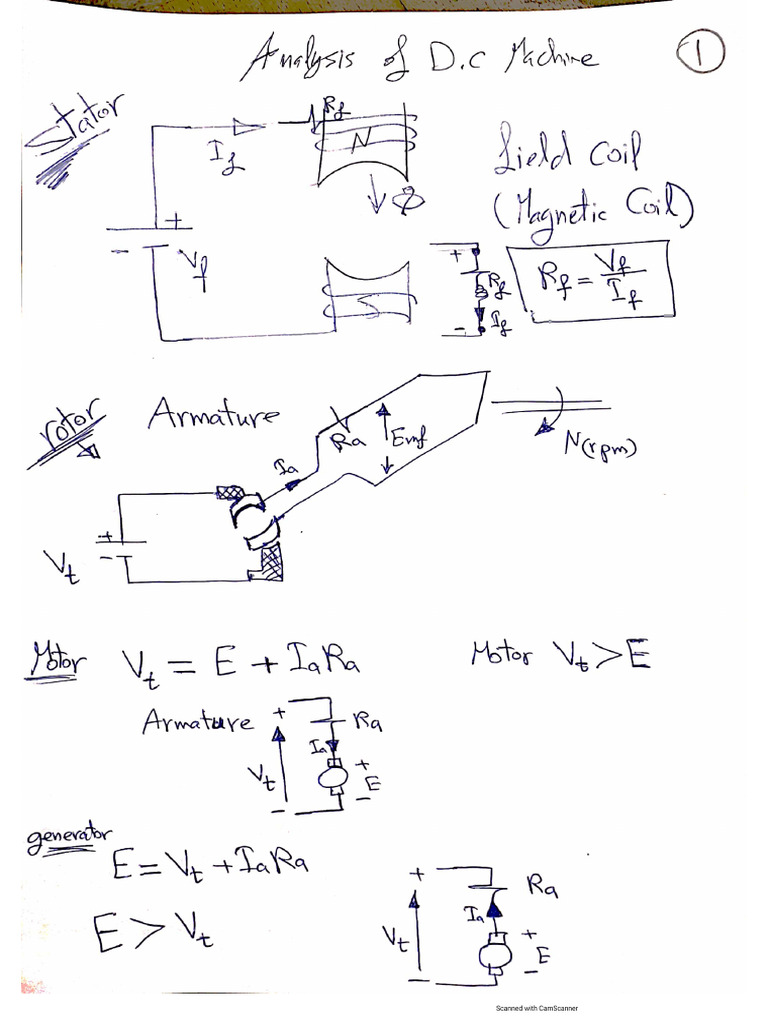 Analysis of D.C Machine
1
Stator
I_f
R_f
N
Φ
Field Coil
(Magnetic Coil)
+
-
V_f
S
+
R_f
I_f
-
R_f = V_f / I_f
rotor
Armature
Ra
Emf
Ia
N(rpm)
V_t
+
-
Motor V_t = E + IaRa
Motor V_t > E
Armature
+
Ra
Ia
V_t
+
E
-
-
generator
E = V_t + IaRa
E > V_t
+
Ra
Ia
V_t
+
E
-
-
Scanned with CamScanner